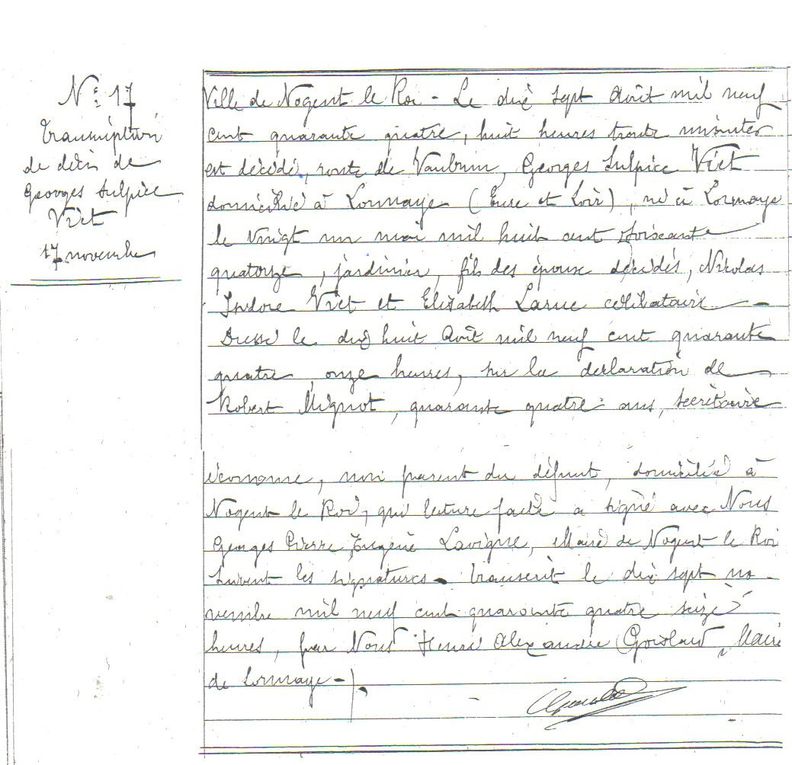 N° 17
transcription
de décès de
Georges Sulpice
Viet
17 novembre
Ville de Nogent le Roi - Le dix sept Août mil neuf
cent quarante quatre, huit heures trente minutes
est décédé, route de Vaubrun, Georges Sulpice Viet
domicilié à Lormaye (Eure et Loir), né à Lormaye
le vingt un mai mil huit cent soixante
quatorze, jardinier, fils des époux décédés, Nicolas
Isidore Viet et Elisabeth Larue célibataire -
Dressé le dix huit Août mil neuf cent quarante
quatre onze heures, sur la déclaration de
Robert Mignot, quarante quatre ans, secrétaire
économe, non parent du défunt, domicilié à
Nogent le Roi, qui lecture faite a signé avec Nous
Georges Pierre Eugène Lavigne, Maire de Nogent le Roi
Suivent les signatures - transcrit le dix sept no-
vembre mil neuf cent quarante quatre seize
heures, par Nous Henri Alexandre Maire
de Lormaye -